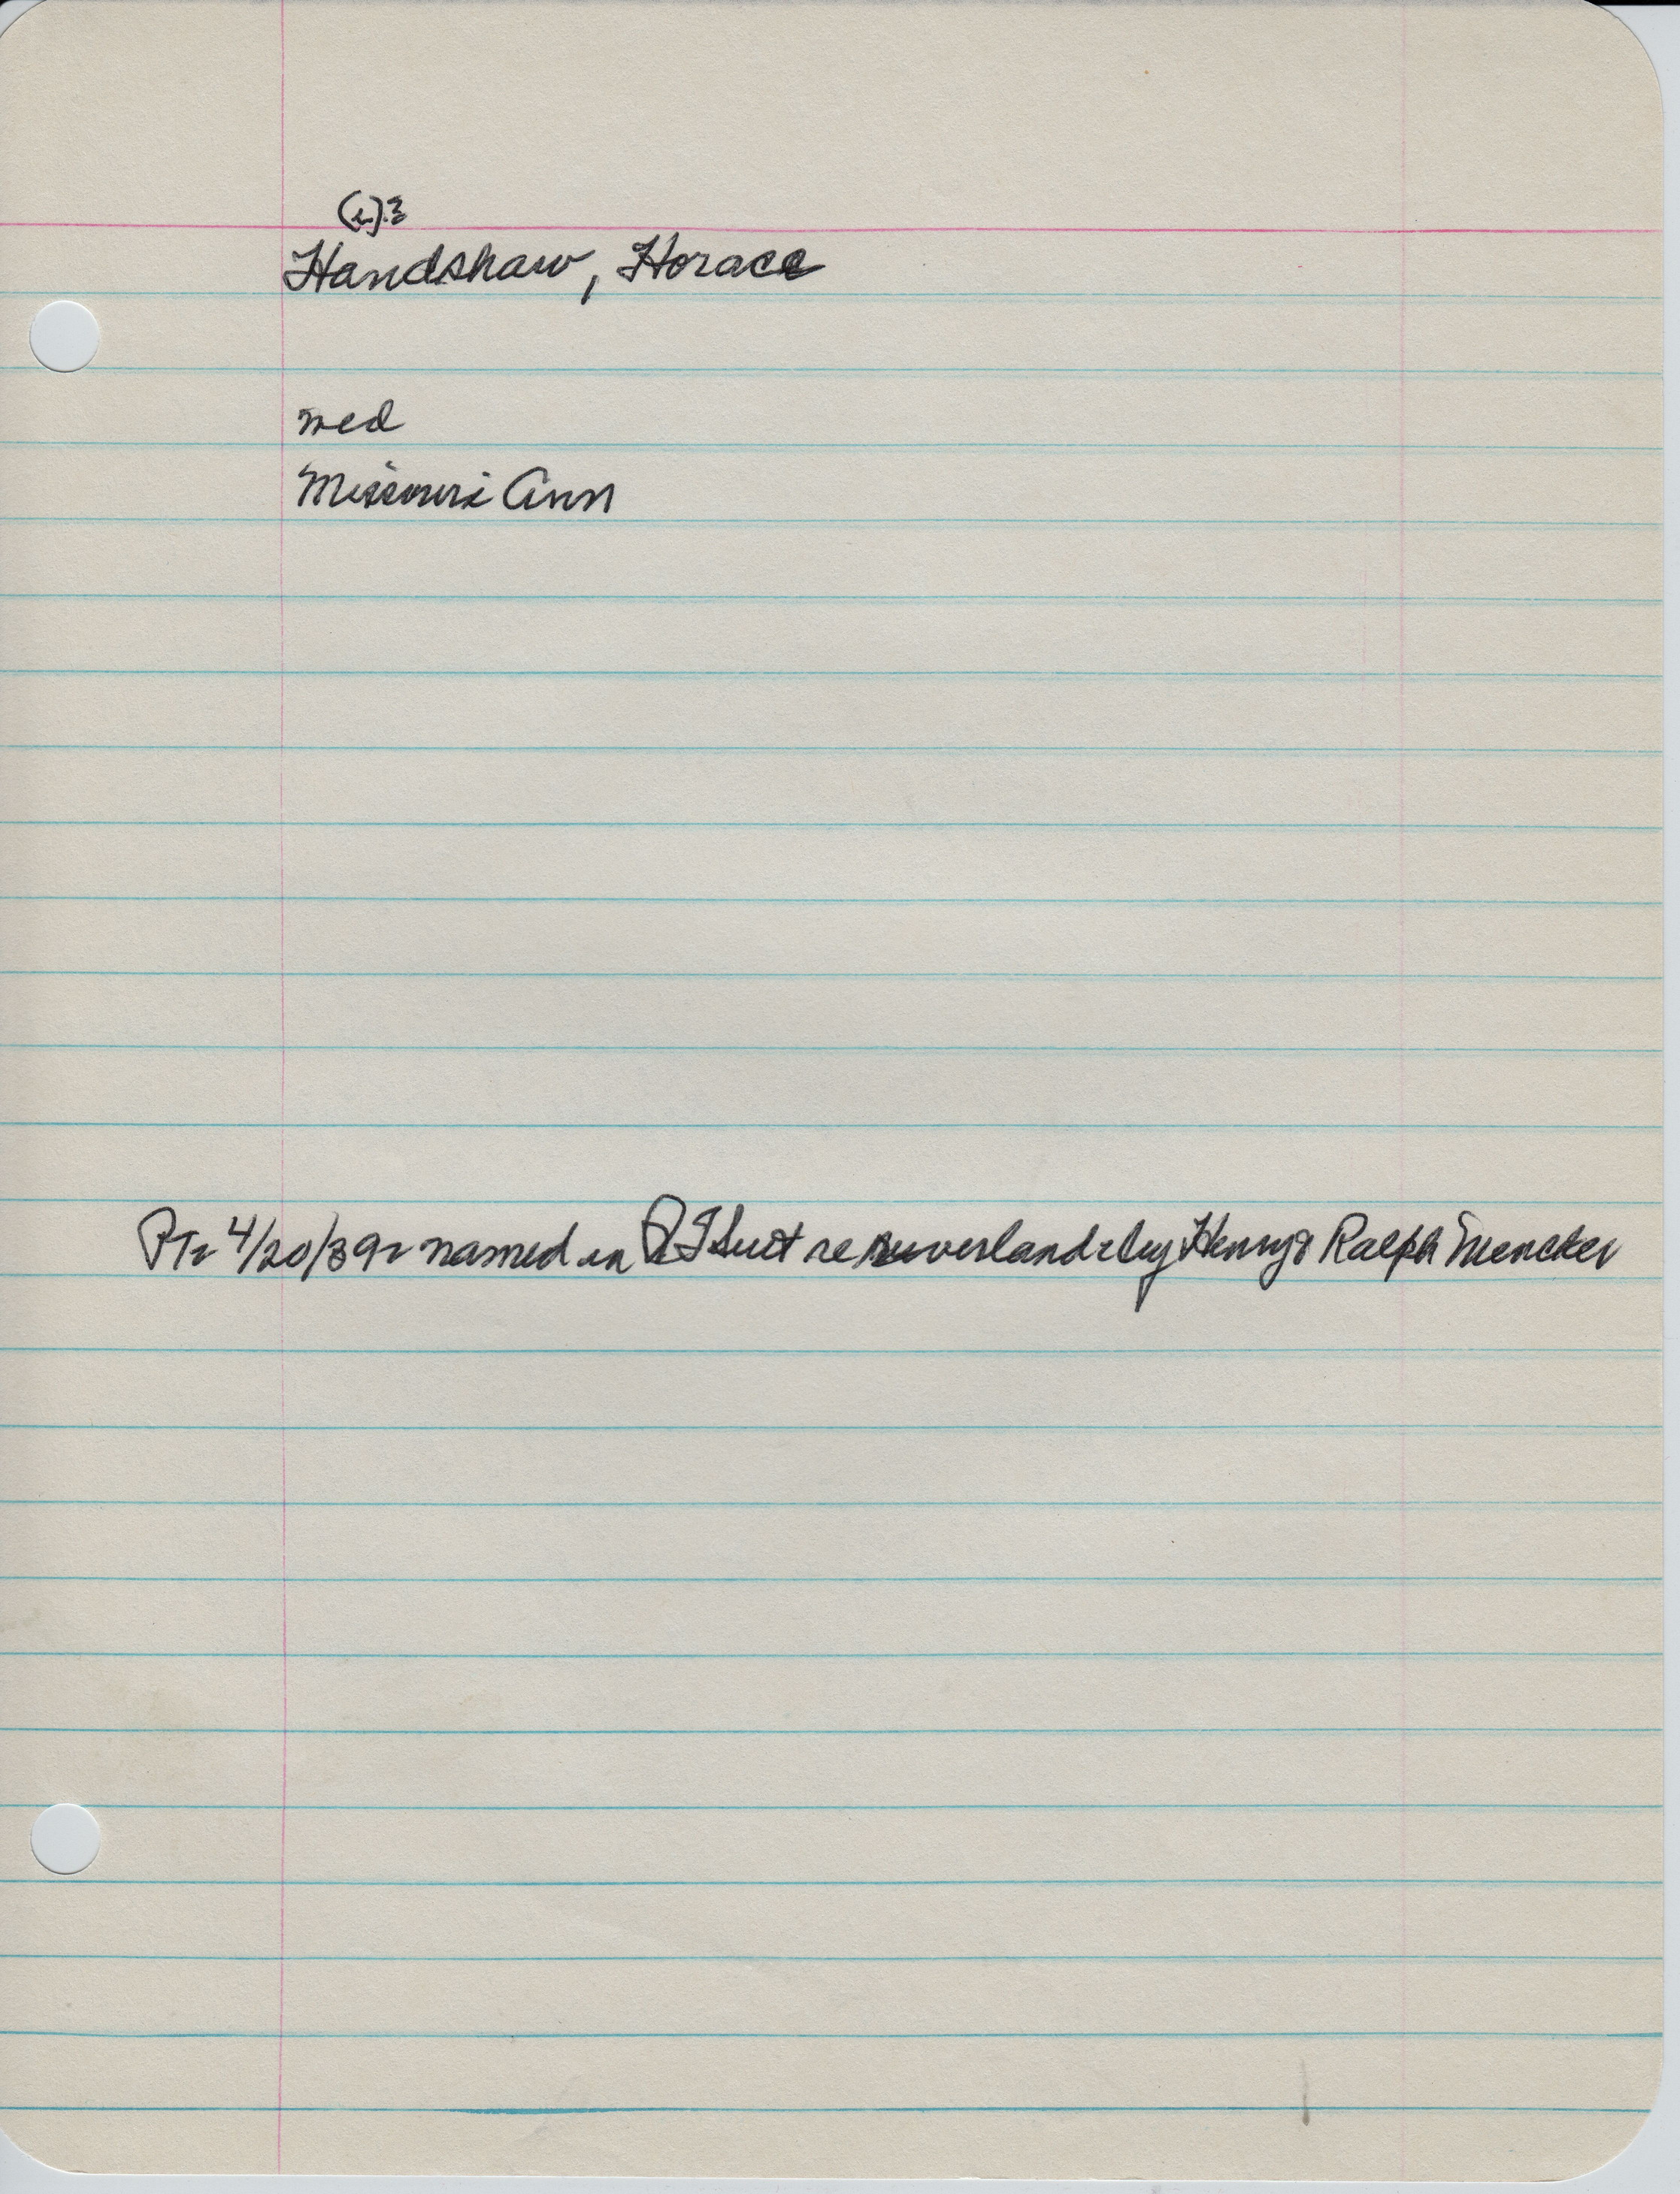 Handshaw, Horace
med
Missouri Ann
PT= 4/20/39= named in QT Suit re riverland=by Henry & Ralph Mencker